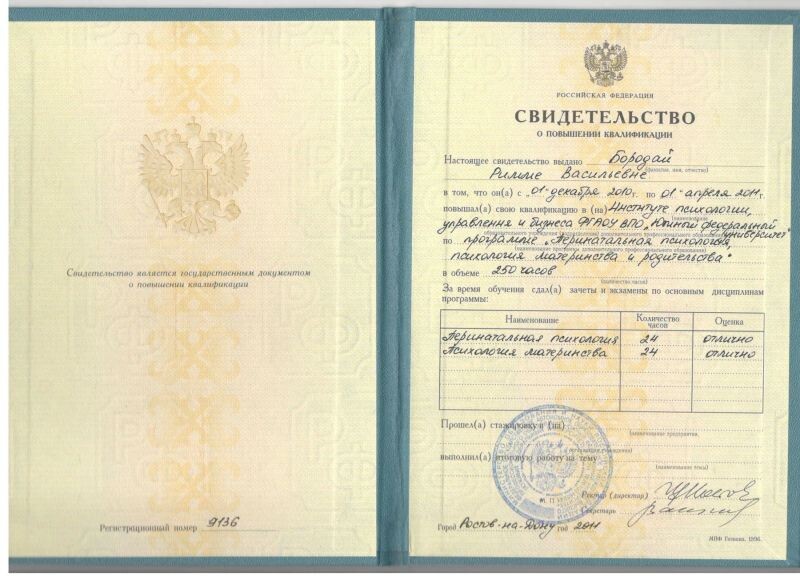 Свидетельство является государственным документом
о повышении квалификации
Регистрационный номер 9136
РОССИЙСКАЯ ФЕДЕРАЦИЯ
СВИДЕТЕЛЬСТВО
О ПОВЫШЕНИИ КВАЛИФИКАЦИИ
Настоящее свидетельство выдано Бородай
(фамилия, имя, отчество)
Римме Васильевне
в том, что он(а) с „01" декабря 2010 г. по „01" апреля 2011 г.
повышал(а) свою квалификацию в (на) Институте психологии,
(наименование
управления и бизнеса ФГАОУ ВПО „Южный федеральный университет"
по программе „Перинатальная психология,
психология материнства и родительства"
в объеме 250 часов
(количество часов)
За время обучения сдал(а) зачеты и экзамены по основным дисциплинам
программы:
Наименование Количество часов Оценка
Перинатальная психология 24 отлично
Психология материнства 24 отлично
Прошел(а) стажировку в (на)
(наименование предприятия,
организации, учреждения)
выполнил(а) итоговую работу на тему
(наименование темы)
М. П.
Ректор (директор)
Секретарь
Город Ростов-на-Дону год 2011
МПФ Гознака. 1996.